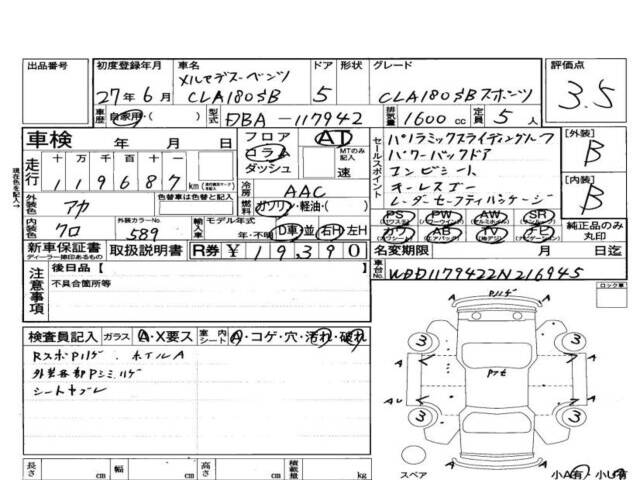 出品番号
初度登録年月
27年6月
車名
メルセデスーベンツ
CLA180SB
ドア
5
形状
グレード
CLA180SBスポーツ
評価点
3.5
車歴
自家用・( )
型式
DBA-117942
排気量
1600cc
定員
5人
車検
年 月 日
フロア
コラム
ダッシュ
AT
MTのみ記入
速
セールスポイント
パノラミックスライディングルーフ
パワーバックドア
コンビシート
キーレスゴー
レーダーセーフティパッケージ
[外装]
B
[内装]
B
走行
十 万 千 百 十
119687km
冷房
AAC
燃料
ガソリン・軽油・( )
外装色
アカ
色替車は色替と記入
内装色
クロ
外装カラーNo.
589
輸入車
モデル年式
年・不明
D車・並
右H・左H
PS
PW
AW
SR
カワ
AB
TV
ナビ
純正品のみ丸印
新車保証書
ディーラー捺印あるもの
取扱説明書
R券
¥19390
名変期限
月 日迄
車台No.
WDD1179422N216945
注意事項
後日品[ ]
不具合箇所等
ロック車
検査員記入
ガラス
A・X要ス
室内シート
A・コゲ・穴・汚れ・破れ
RスポPハゲ ホイルA
シートヤブレ
3
3
3
3
A
A
A
A
スペア
小A有・小U有
長さ
cm
幅
cm
高さ
cm
積載量
kg
現在色を記入→